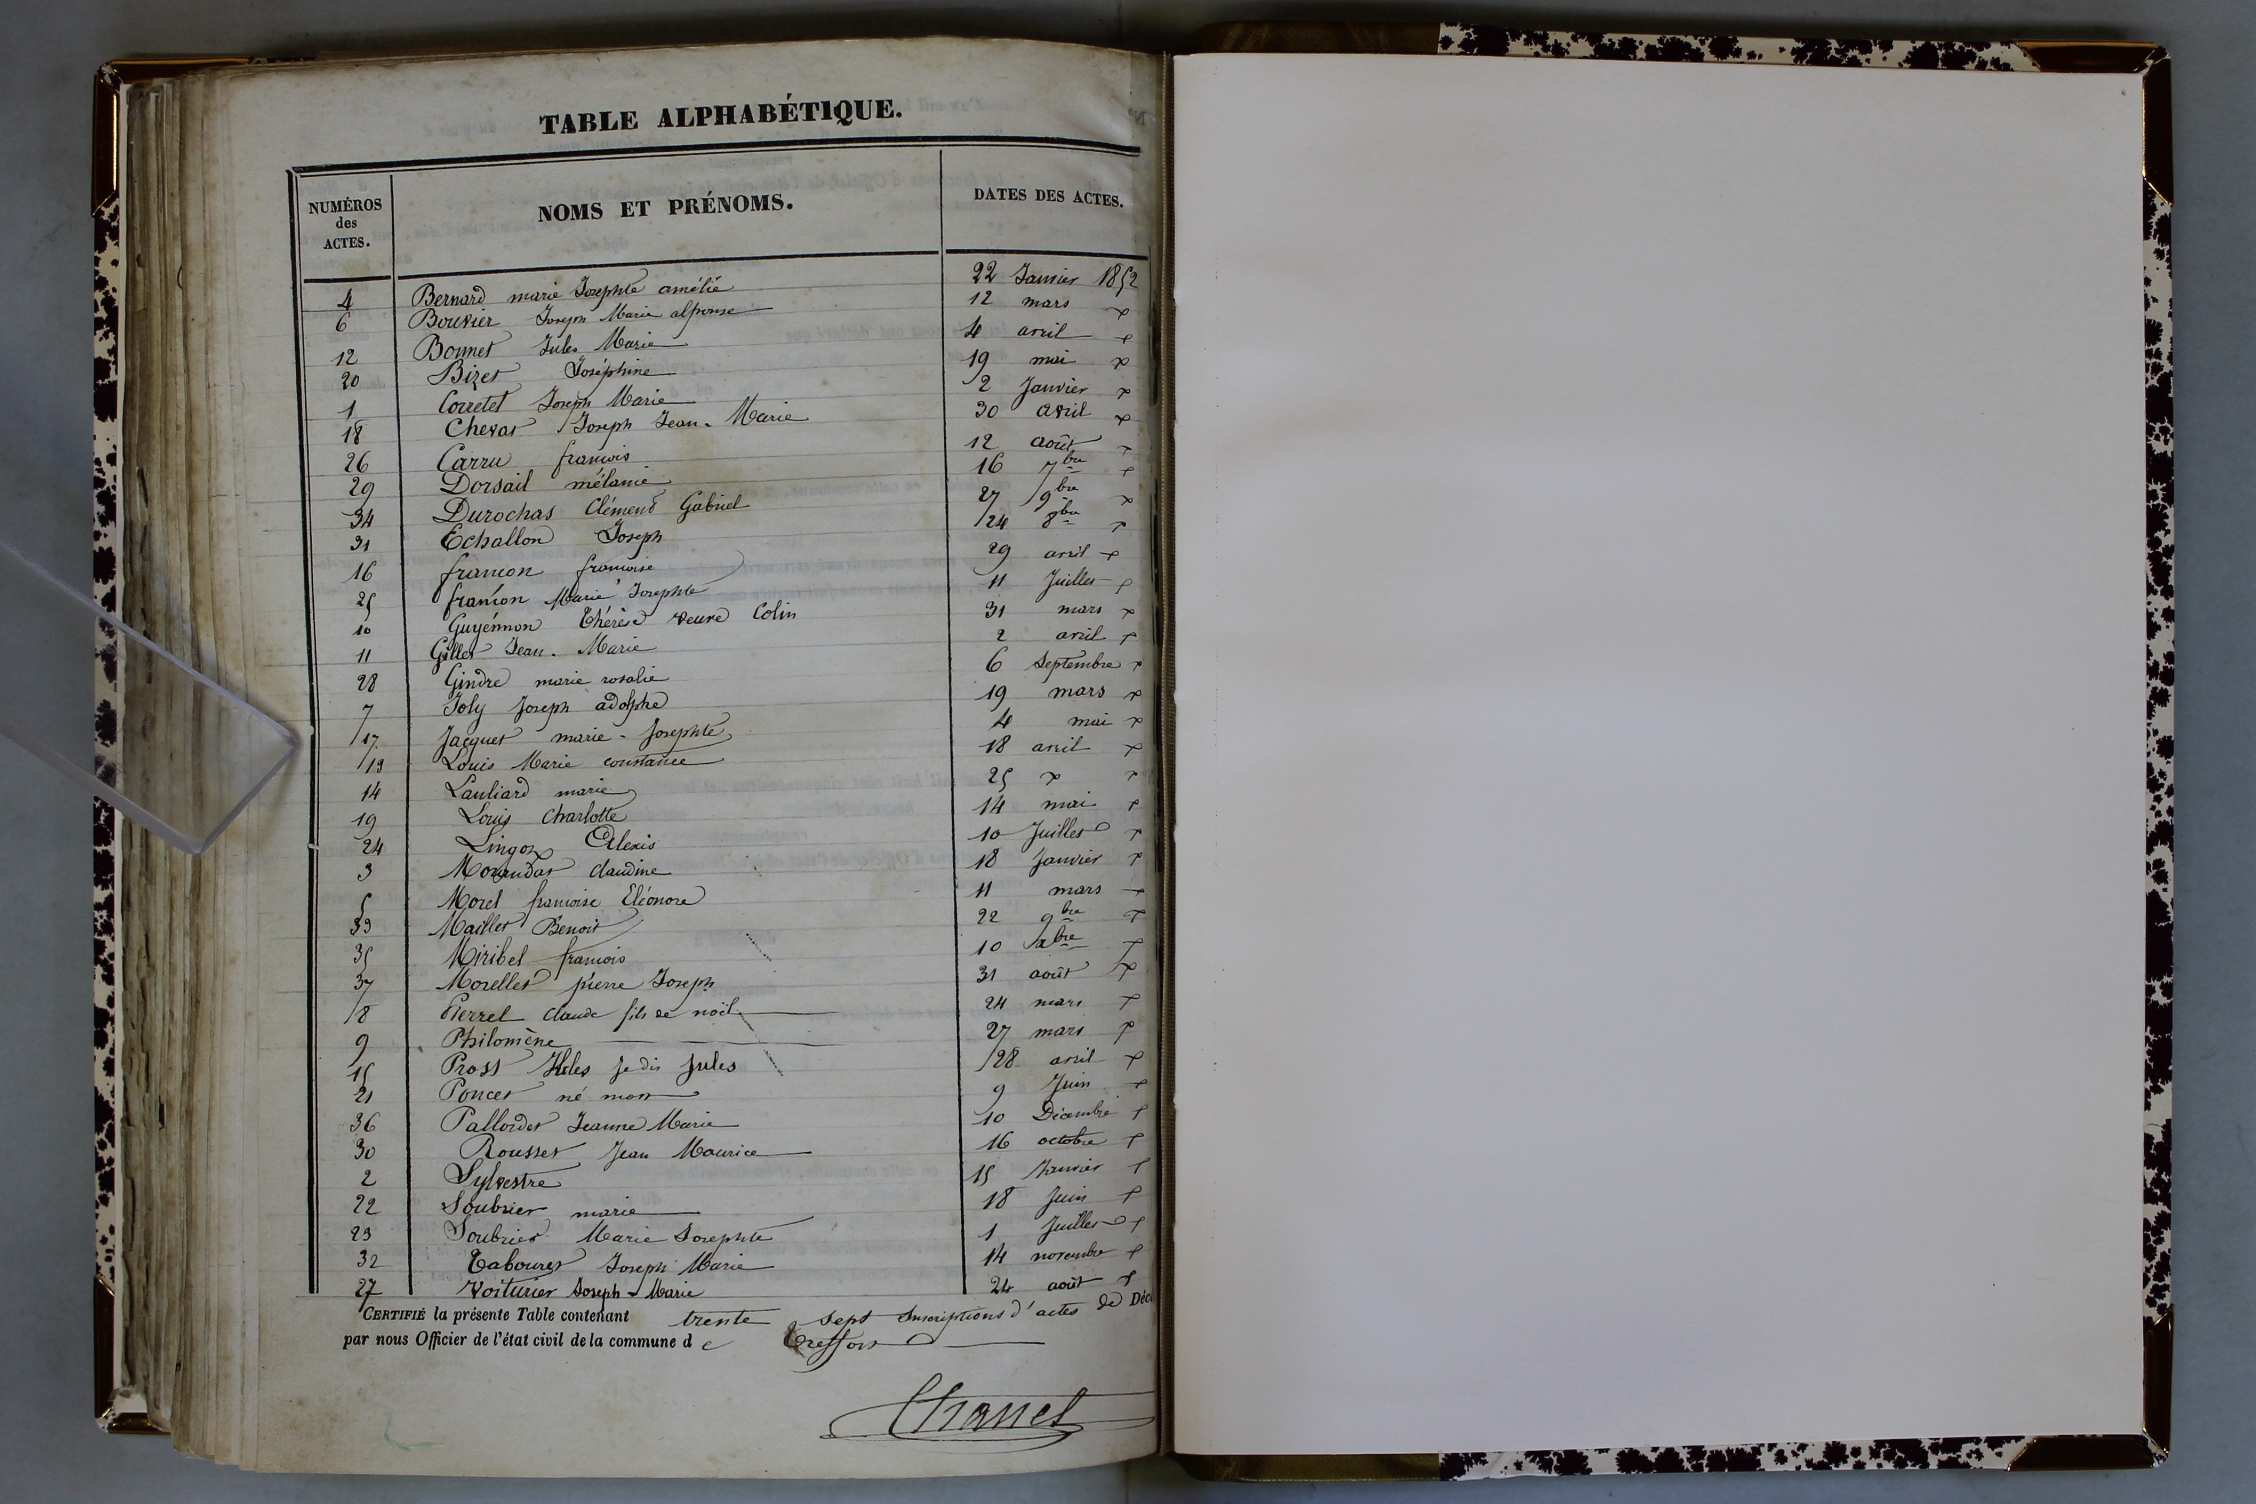 TABLE ALPHABÉTIQUE.
NUMÉROS des ACTES. NOMS ET PRÉNOMS. DATES DES ACTES.
4 Bernard marie Josephte amélie 22 Janvier 1852
6 Bouvier Joseph Marie alfonse 12 mars
12 Bonnet Jules Marie 4 avril
20 Bizet Joséphine 19 mai
1 Corretet Joseph Marie 2 Janvier
18 Chevat Joseph Jean-Marie 30 avril
26 Carru francois 12 août
29 Dorsail mélanie 16 7bre
34 Durochas Clément Gabriel 27 9bre
31 Echallon Joseph 24 8bre
16 francon francoise 29 avril
25 francon Marie Josephte 11 Juillet
10 Guyénnon Thérèse veuve Colin 31 mars
11 Gillet Jean-Marie 2 avril
28 Gindre marie rosalie 6 Septembre
7 Joly Joseph adolphe 19 mars
17 Jacquet marie-Josephte 4 mai
13 Louis Marie constance 18 avril
14 Lauliard marie 25
19 Louis Charlotte 14 mai
24 Lingoz Alexis 10 Juillet
3 Morandat claudine 18 Janvier
5 Morel francoise Eléonore 11 mars
33 Maillet Benoit 22 9bre
35 Miribel francois 10 xbre
37 Morellet pierre Joseph 31 août
8 Pierrel claude fils de noël 24 mars
9 Philomène 27 mars
15 Prost je dis Jules 28 avril
21 Poncet né mort 9 Juin
36 Palloidet Jeanne Marie 10 Décembre
30 Rousset Jean Maurice 16 octobre
2 Sylvestre 15 Janvier
22 Soubrier marie 18 Juin
23 Soubrier Marie Josephte 1 Juillet
32 Tabouret Joseph Marie 14 novembre
27 Voiturier Joseph-Marie 24 août
CERTIFIÉ la présente Table contenant trente sept Inscriptions d'actes de Déc
par nous Officier de l'état civil de la commune de Treffort
Chanel